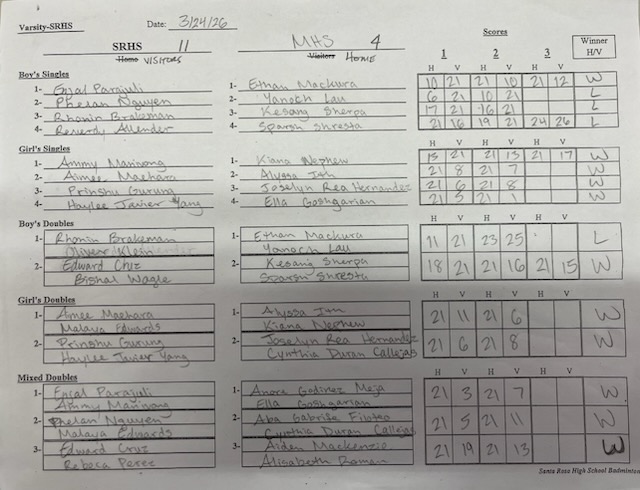 Varsity-SRHS Date: 3/24/26
SRHS 11 MHS 4 Scores
Home VISITORS Visitors HOME 1 2 3 Winner H/V
Boy's Singles H V H V H V
1- Parajuli 1- Ethan Mackura 10 21 21 10 21 12 W
2- Phelan Nguyen 2- Yanoch Lau 6 21 10 21 L
3- Rhonin Brakeman 3- Kesang Sherpa 17 21 16 21 L
4- Allender 4- Sparsh Shresta 21 16 19 21 24 26 L
Girl's Singles H V H V H V
1- Ammy Maninong 1- Kiana Nephew 15 21 21 13 21 17 W
2- Aimee Maehara 2- Alyssa 21 8 21 7 W
3- Prinshu Gurung 3- Joselyn Rea Hernandez 21 6 21 8 W
4- Haylee Javier Yang 4- Ella Goshgarian 21 5 21 1 W
Boy's Doubles H V H V H V
1- Rhonin Brakeman 1- Ethan Mackura 11 21 23 25 L
Oliver Klein Yanoch Lau
2- Edward Cruz 2- Kesang Sherpa 18 21 21 16 21 15 W
Bishal Wagle Sparsh Shresta
Girl's Doubles H V H V H V
1- Amee Maehara 1- Alyssa 21 11 21 6 W
Malaya Edwards Kiana Nephew
2- Prinshu Gurung 2- Joselyn Rea Hernandez 21 6 21 8 W
Haylee Javier Yang Cynthia Duran Callejas
Mixed Doubles H V H V H V
1- Parajuli 1- Godinez Mejia 21 3 21 7 W
Ammy Maninong Ella Goshgarian
2- Phelan Nguyen 2- Aba Gabrise 21 5 21 11 W
Malaya Edwards Cynthia Duran Callejas
3- Edward Cruz 3- Aiden Mackenzie 21 19 21 13 W
Rebeca Perez Alisabeth Roman
Santa Rosa High School Badminton